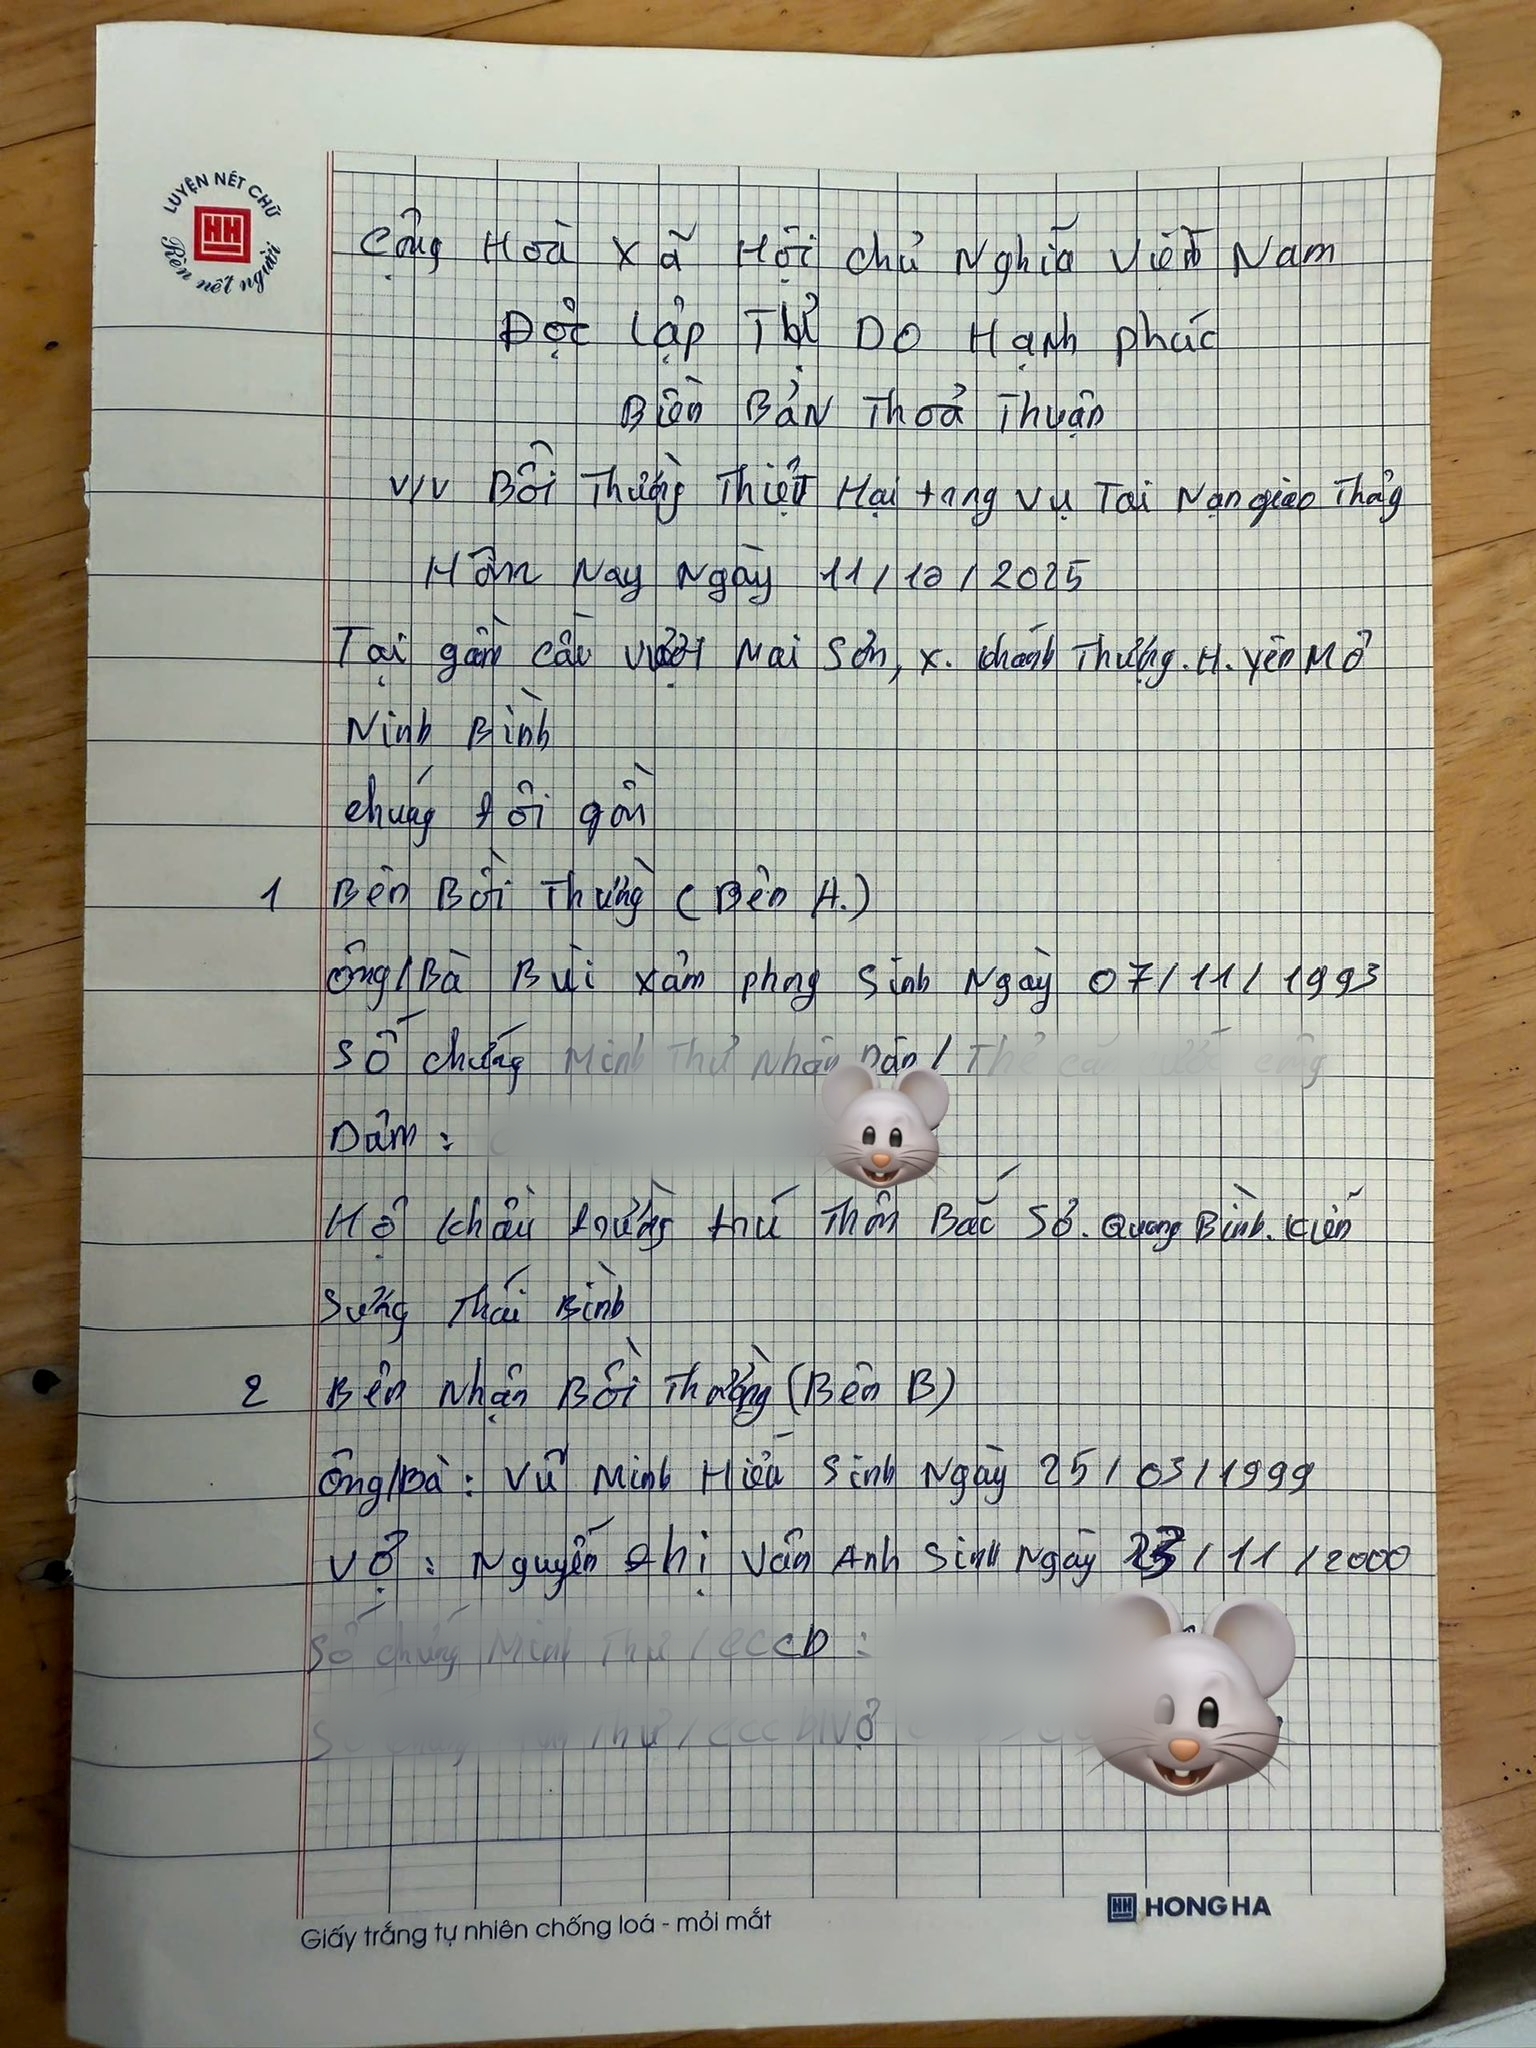 LUYỆN NÉT CHỮ
HH
Rèn nết người
Cộng Hoà Xã Hội Chủ Nghĩa Việt Nam
Độc Lập Tự Do Hạnh phúc
Biên Bản Thoả Thuận
V/V Bồi Thường Thiệt Hại trong Vụ Tai Nạn giao Thông
Hôm Nay Ngày 11/10/2025
Tại gần cầu vượt Mai Sơn, x. Khánh Thượng. H. Yên Mô
Ninh Bình
chúng tôi gồm
1 Bên Bồi Thường (Bên A.)
Ông/Bà Bùi Xâm phong Sinh Ngày 07/11/1993
Số chứng Minh Thư Nhân Dân / Thẻ căn cước công
Dâm :
Hộ khẩu thường trú Thôn Bắc Sơ. Quang Bình. Kiến
Sương Thái Bình
2 Bên Nhận Bồi Thường (Bên B)
Ông/Bà : Vũ Minh Hiếu Sinh Ngày 25/03/1999
Vợ : Nguyễn Thị Vân Anh Sinh Ngày /11/2000
Số chứng Minh Thư / CCCD :
Thư / CCCD/Vợ
Giấy trắng tự nhiên chống loá - mỏi mắt
HH HONG HA